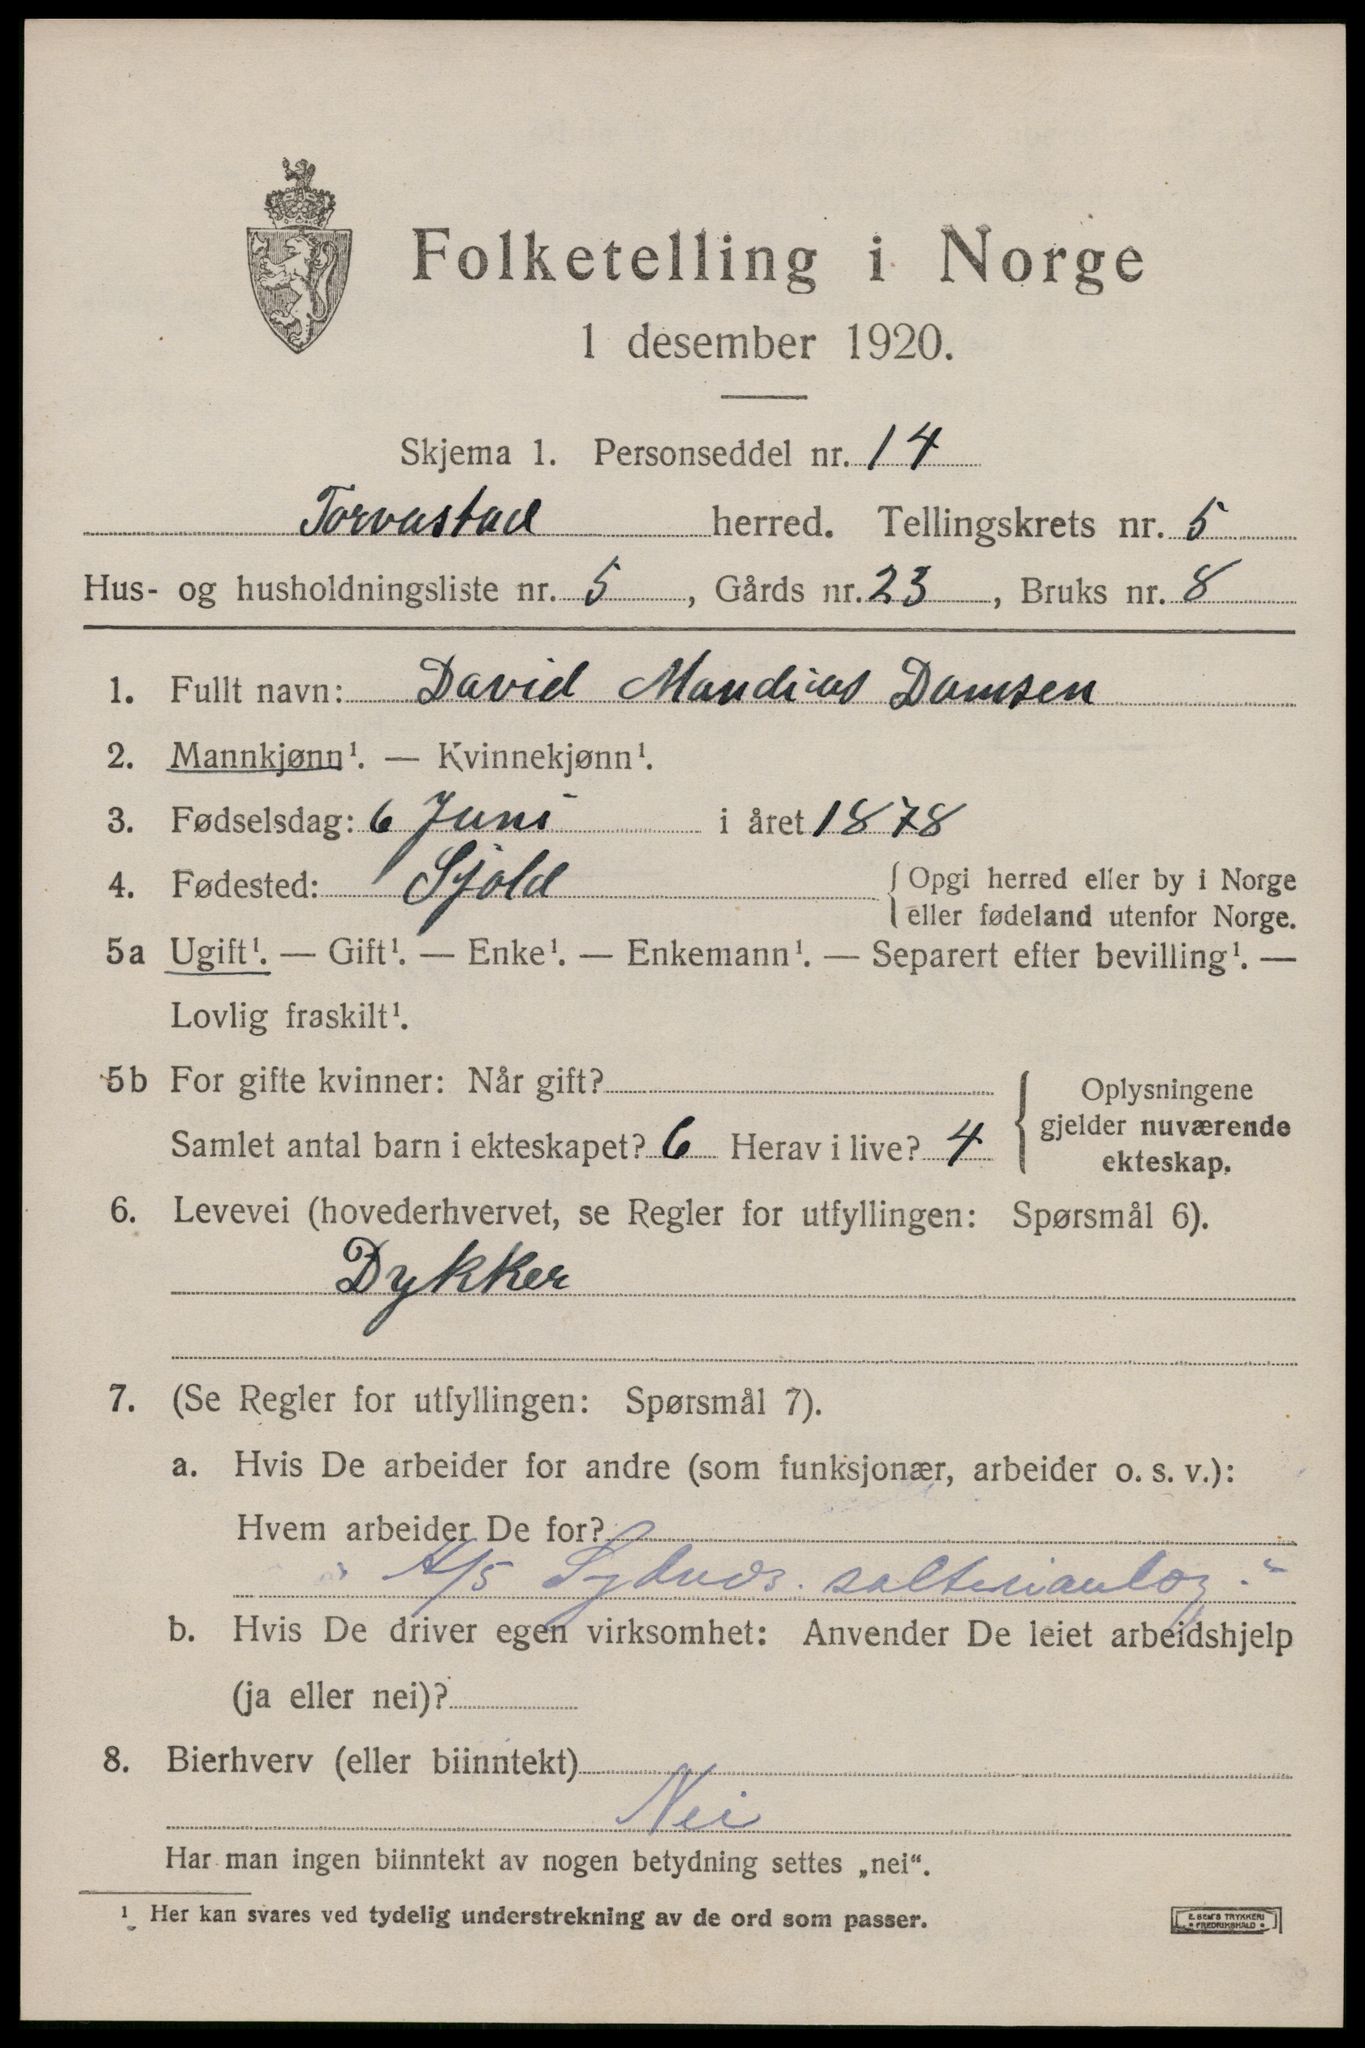 Folketelling i Norge
1 desember 1920.
Skjema 1. Personseddel nr. 14
Torvastad herred. Tellingskrets nr. 5
Hus- og husholdningsliste nr. 5, Gårds nr. 23, Bruks nr. 8
1. Fullt navn: David Mandias Damsen
2. Mannkjønn¹. — Kvinnekjønn¹.
3. Fødselsdag: 6 Juni i året 1878
4. Fødested: Sjold { Opgi herred eller by i Norge
eller fødeland utenfor Norge.
5a Ugift¹. — Gift¹. — Enke¹. — Enkemann¹. — Separert efter bevilling¹. —
Lovlig fraskilt¹.
5b For gifte kvinner: Når gift?
Samlet antal barn i ekteskapet? 6 Herav i live? 4
{ Oplysningene
gjelder nuværende
ekteskap.
6. Levevei (hovederhvervet, se Regler for utfyllingen: Spørsmål 6).
Dykker
7. (Se Regler for utfyllingen: Spørsmål 7).
a. Hvis De arbeider for andre (som funksjonær, arbeider o. s. v.):
Hvem arbeider De for?
" A/S salterianlæg."
b. Hvis De driver egen virksomhet: Anvender De leiet arbeidshjelp
(ja eller nei)?
8. Bierhverv (eller biinntekt)
Nei
Har man ingen biinntekt av nogen betydning settes „nei“.
¹ Her kan svares ved tydelig understrekning av de ord som passer.
E. SEM'S TRYKKERI
• FREDRIKSHALD •